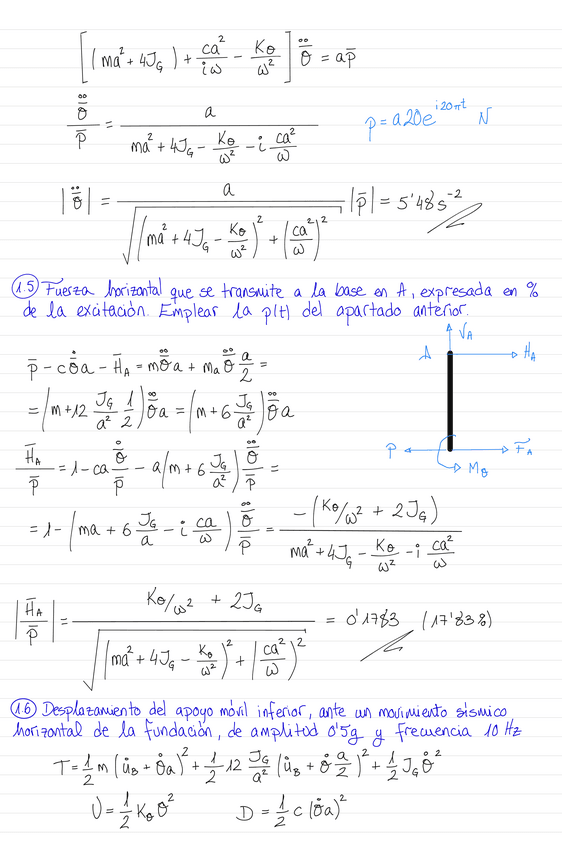 [(ma² + 4J_G) + ca²/(iω) − K_θ/ω²] θ̈̄ = a p̄
θ̈̄/p̄ = a/(ma² + 4J_G − K_θ/ω² − i ca²/ω)    p = a20e^(i20πt) N
|θ̈̄| = a/√((ma² + 4J_G − K_θ/ω²)² + (ca²/ω)²) |p̄| = 5'48 s⁻²
1.5 Fuerza horizontal que se transmite a la base en A, expresada en %
de la excitación. Emplear la p(t) del apartado anterior.
p̄ − cθ̇a − H̄_A = mθ̈a + m_a θ̈ a/2 =
= (m + 12 J_G/a² 1/2) θ̈a = (m + 6 J_G/a²) θ̈a
H̄_A/p̄ = 1 − ca θ̇/p̄ − a(m + 6 J_G/a²) θ̈/p̄ =
= 1 − (ma + 6 J_G/a − i ca/ω) θ̈/p̄ = −(K_θ/ω² + 2J_G)/(ma² + 4J_G − K_θ/ω² − i ca²/ω)
A V_A H_A
P F_A
M_θ
|H̄_A/p̄| = (K_θ/ω² + 2J_G)/√((ma² + 4J_G − K_θ/ω²)² + (ca²/ω)²) = 0'1783 (17'83%)
1.6 Desplazamiento del apoyo móvil inferior, ante un movimiento sísmico
horizontal de la fundación, de amplitud 0'5g y frecuencia 10 Hz
T = 1/2 m (u̇_B + θ̇a)² + 1/2 12 J_G/a² (u̇_B + θ̇ a/2)² + 1/2 J_G θ̇²
U = 1/2 K_θ θ²    D = 1/2 c (θ̇a)²